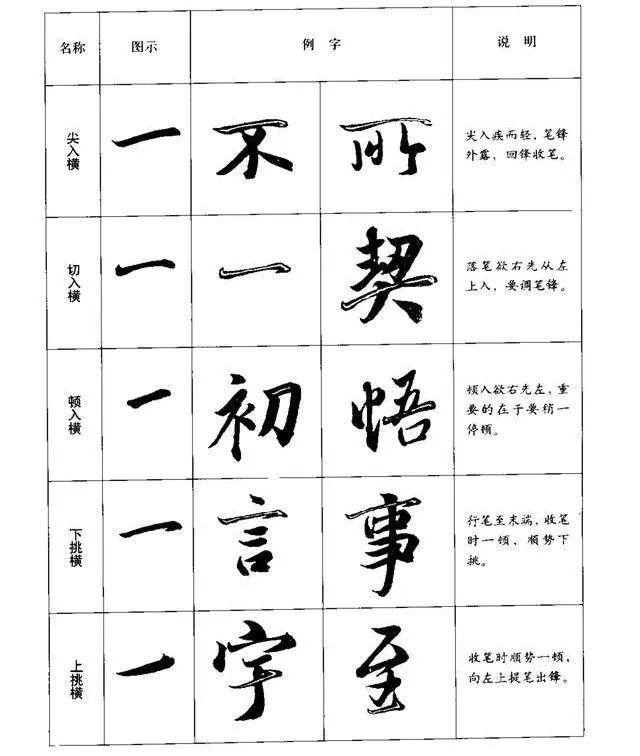 名称 图示 例字 说明
尖入横 一 不 所 尖入疾而轻，笔锋
外露，回锋收笔。
切入横 一 一 契 落笔欲右先从左
上入，要调笔锋。
顿入横 一 初 悟 顿入欲右先左，重
要的在于要稍一
停顿。
下挑横 一 言 事 行笔至末端，收笔
时一顿，顺势下
挑。
上挑横 一 字 至 收笔时顺势一顿，
向左上提笔出锋。